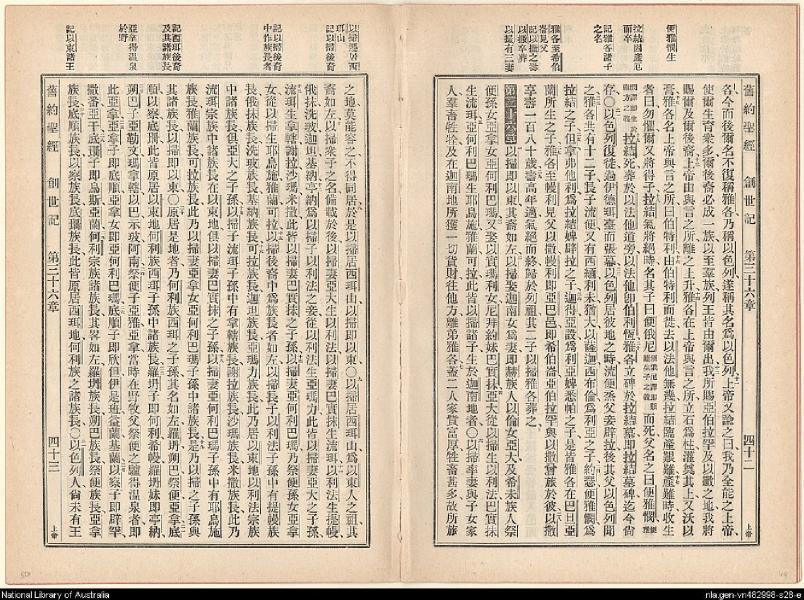 舊約聖經 創世記 第三十六章 四十二 上帝
便雅憫生
拉結因產厄而卒
記雅各諸子之名
雅各至希伯崙見父
記以撒之壽以撒卒葬
以掃有三妻
名、今而後、爾名不復稱雅各、乃稱以色列、遂稱其名爲以色列、上帝又諭之曰、我乃全能之上帝、
使爾生育衆多、爾後裔必成一族、以至羣族、列王皆由爾出、我所賜亞伯拉罕及以撒之地、我將
賜爾、及爾後裔、上帝由與言之所、離之上升、雅各在上帝與言之所、立石爲柱、灌奠其上、又沃以
膏、雅各名上帝與言之所曰伯特利、由伯特利而徙、去以法他無幾、拉結臨產艱難、產難時、收生
者曰、勿懼、爾又將得子、拉結氣將絕時、名其子曰便俄尼、而死、父名之曰便雅憫、
拉結死、葬於以法他道旁、以法他卽伯利恆、雅各立碑於拉結墓、卽拉結墓碑、迄今尙
存、○以色列復徙、過伊德珥臺而張幕、以色列居彼地之時、流便烝父妾辟拉、後其父以色列聞
之、雅各共有十二子、長子流便、又有西緬、利未、猶大、以薩迦、西布倫、爲利亞之子、約瑟、便雅憫、爲
拉結之子、但、拿弗他利、爲拉結婢辟拉之子、迦得、亞設、爲利亞婢悉帕之子、是皆雅各在巴旦亞
蘭所生之子、雅各至幔利見父以撒、幔利卽亞巴邑、卽希伯崙、亞伯拉罕與以撒嘗旅於彼、以撒
享壽一百八十歲、壽高年邁、氣絕而終、歸於列祖、其二子以掃雅各葬之、
第三十六章 以掃卽以東、其裔如左、以掃娶迦南女爲妻、卽赫族人以倫女亞大、及希未族人祭
便孫女、亞拿女、亞何利巴瑪、又娶以實瑪利女、尼拜約妹、巴實抹、亞大從以掃生以利法、巴實抹
生流珥、亞何利巴瑪生耶烏施、雅蘭、可拉、此皆以掃諸子、生於迦南地者、○以掃率妻與子女、家
人、羣畜、牲牷、及在迦南地所獲一切貨財、往他方、離弟雅各、蓋二人家貲富厚、牲畜甚多、故所旅
以掃遷居西珥山
記以掃後裔
記以掃後裔中作族長者
記西珥後裔及其諸族長
亞拿得溫泉於野
記以東諸王
之地、莫能容之、不得同居、於是以掃居西珥山、以掃卽以東、○以掃居西珥山、爲以東人之祖、其
裔如左、以掃衆子之名備載於後、以掃妻亞大生以利法、以掃妻巴實抹生流珥、以利法生提幔、
俄抹、洗玻、迦坦、基納、亭納爲以掃子以利法之妾、從以利法生亞瑪力、此皆以掃妻亞大之子孫、
流珥生拿轄、謝拉、沙瑪、米撒、此皆以掃妻巴實抹之子孫、以掃妻亞何利巴瑪、乃祭便孫女、亞拿
女、從以掃生耶烏施、雅蘭、可拉、以掃後裔中爲族長者如左、以掃長子以利法子孫中、有提幔族
長、俄抹族長、洗玻族長、基納族長、可拉族長、迦坦族長、亞瑪力族長、此乃居以東地以利法宗族
中諸族長、俱亞大之子孫、以掃子流珥子孫中、有拿轄族長、謝拉族長、沙瑪族長、米撒族長、此乃
流珥宗族中諸族長、在以東地、俱以掃妻巴實抹之子孫、以掃妻亞何利巴瑪子孫中、有耶烏施
族長、雅蘭族長、可拉族長、此乃以掃妻亞拿女亞何利巴瑪子孫中諸族長、是乃以掃之子孫、與
其諸族長、以掃卽以東、○原居是地者、乃何利族西珥之子孫、其名如左、羅坍、朔巴、祭便、亞拿、底
順、以察、底珊、此皆原居以東地何利族西珥子孫中諸族長、羅坍子卽何利、希幔、羅坍妹卽亭納、
朔巴子亞勒文、瑪拿轄、以巴、示玻、阿南、祭便子亞雅、亞拿、當時在野牧父祭便之驢、得溫泉者、卽
此亞拿、亞拿子卽底順、亞拿女卽亞何利巴瑪、底順子卽欣但、伊是班、益蘭、基蘭、以察子卽辟罕、
撒番、亞干、底珊子卽烏斯、亞蘭、何利宗族諸族長、其畧如左、羅坍族長、朔巴族長、祭便族長、亞拿
族長、底順族長、以察族長、底珊族長、此皆原居西珥地何利族之諸族長、○以色列人尙未有王
舊約聖經 創世記 第三十六章 四十三 上帝
National Library of Australia
nla.gen-vn482998-s28-e